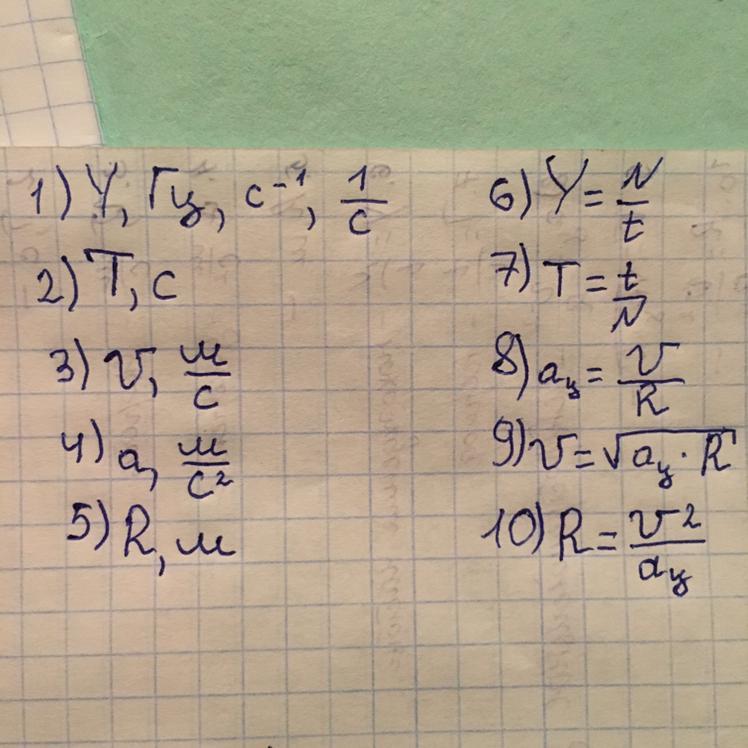 1) Y, Гц, с⁻¹, 1/с
2) T, с
3) v, м/с
4) a, м/с²
5) R, м
6) Y = N/t
7) T = t/N
8) aц = v/R
9) v = √(aц · R)
10) R = v²/aц